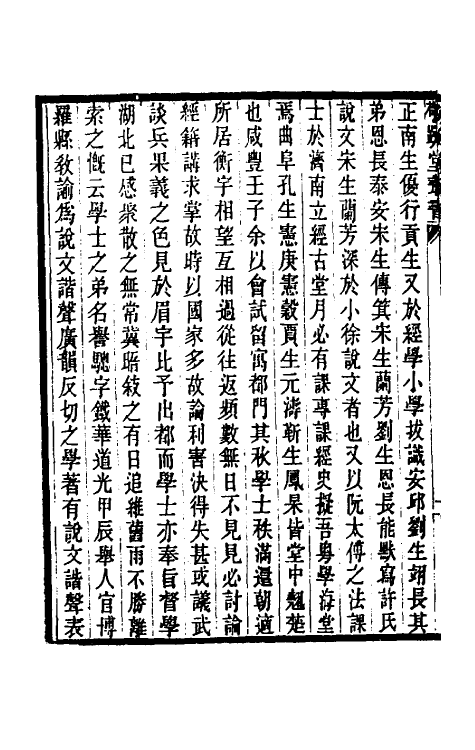 正南生優行貢生又於經學小學拔識安邱劉生翊長其
弟恩長泰安宋生傳箕宋生蘭芳劉生恩長能默寫許氏
說文宋生蘭芳深於小徐說文者也又以阮太傅之法課
士於濟南立經古堂月必有課專課經史擬吾粵學海堂
焉曲阜孔生憲庚憲瑴賈生元濤靳生鳳杲皆堂中翹楚
也咸豐王子余以會試留寓都門其秋學士秩滿還朝適
所居衡宇相望互相過從往返頻數無日不見見必討論
經籍講求掌故時以國家多故論利害決得失甚或議武
談兵果義之色見於眉宇比予出都而學士亦奉旨督學
湖北已感聚散之無常冀晤敘之有日追維舊雨不勝離
索之慨云學士之弟名譽驄字鐵華道光甲辰舉人官博
羅縣敎諭爲說文諧聲廣韻反切之學著有說文諧聲表